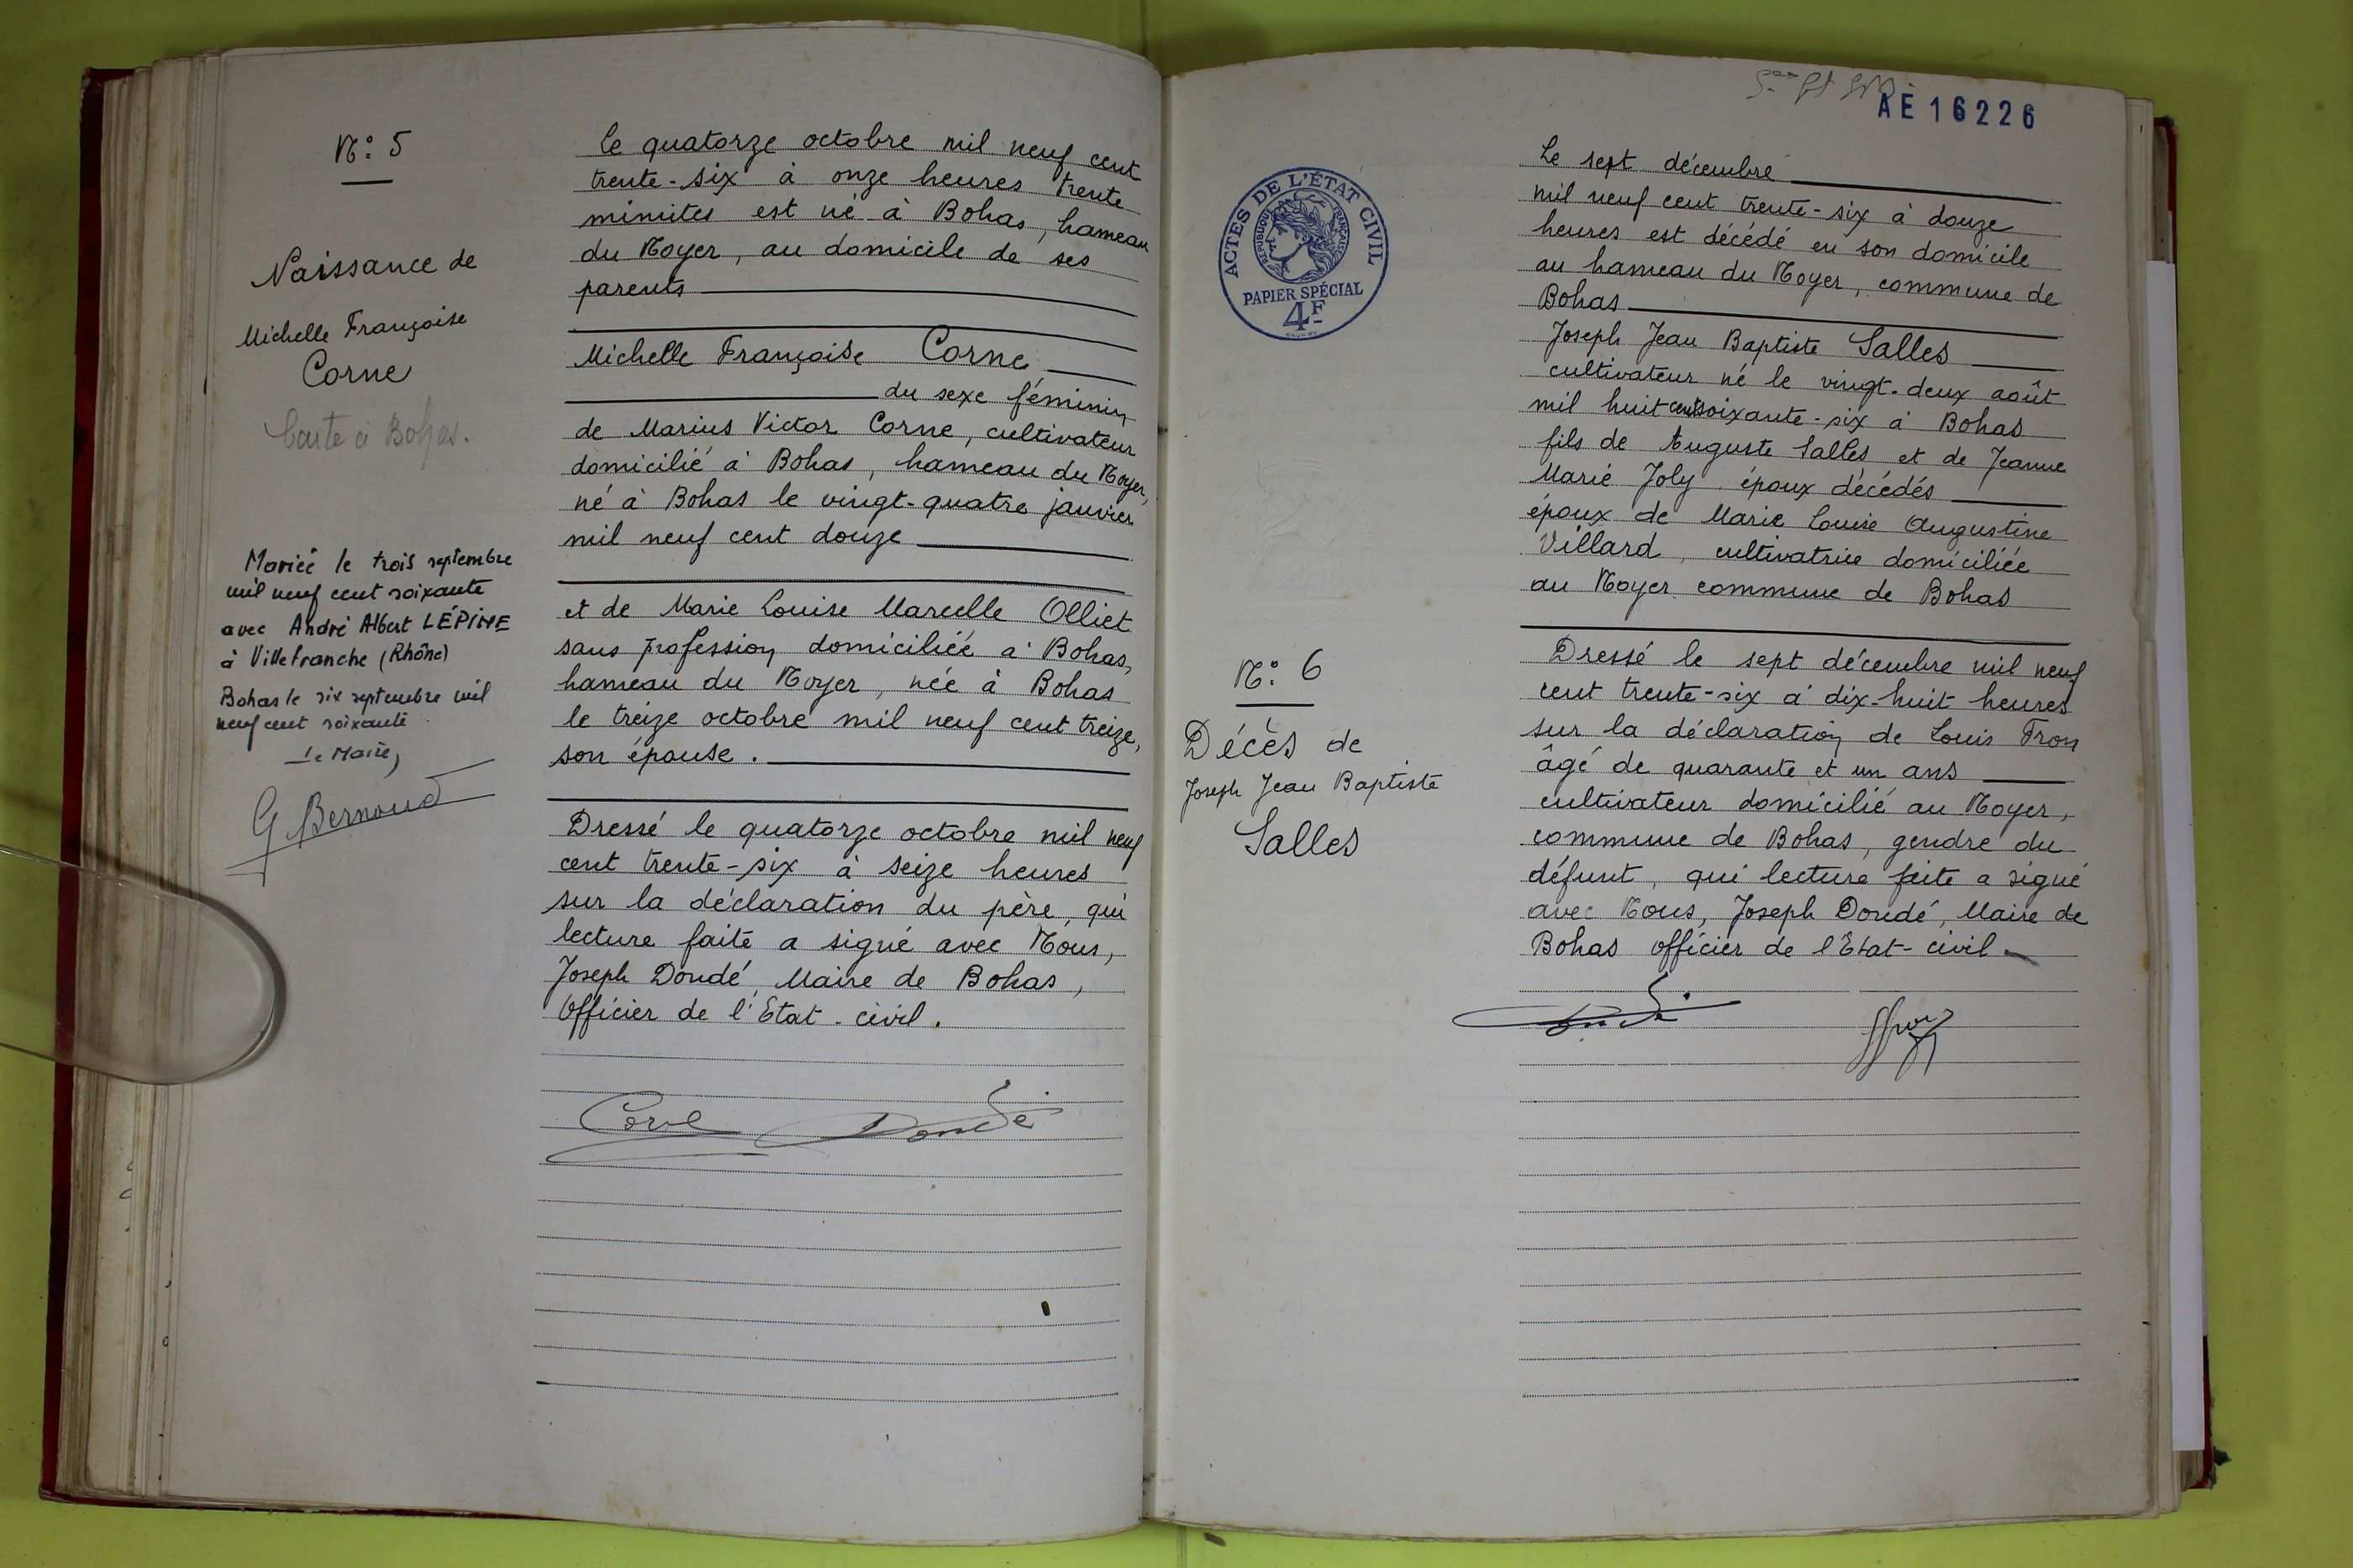 N° 5
Naissance de
Michelle Françoise
Corne
Carte à Bohas.
Mariée le trois septembre
mil neuf cent soixante
avec André Albert LÉPINE
à Villefranche (Rhône)
Bohas le six septembre mil
neuf cent soixante
Le Maire,
G Bernoud
Le quatorze octobre mil neuf cent
trente-six à onze heures trente
minutes est né à Bohas, hameau
du Noyer, au domicile de ses
parents
Michelle Françoise Corne
du sexe féminin
de Marius Victor Corne, cultivateur
domicilié à Bohas, hameau du Noyer,
né à Bohas le vingt-quatre janvier
mil neuf cent douze
et de Marie Louise Marcelle Olliet
sans profession domiciliée à Bohas,
hameau du Noyer, née à Bohas
le treize octobre mil neuf cent treize,
son épouse.
Dressé le quatorze octobre mil neuf
cent trente-six à seize heures
sur la déclaration du père, qui
lecture faite a signé avec Nous,
Joseph Doudé, Maire de Bohas,
Officier de l'Etat-civil.
Corne Doudé
AE 16226
ACTES DE L'ÉTAT CIVIL
RÉPUBLIQUE FRANÇAISE
PAPIER SPÉCIAL
4F
Le sept décembre
mil neuf cent trente-six à douze
heures est décédé en son domicile
au hameau du Noyer, commune de
Bohas
Joseph Jean Baptiste Salles
cultivateur né le vingt-deux août
mil huit cent soixante-six à Bohas
fils de Auguste Salles et de Jeanne
Marie Joly, époux décédés
époux de Marie Louise Augustine
Villard, cultivatrice domiciliée
au Noyer commune de Bohas
N° 6
Décès de
Joseph Jean Baptiste
Salles
Dressé le sept décembre mil neuf
cent trente-six à dix-huit heures
sur la déclaration de Louis Fron
âgé de quarante et un ans
cultivateur domicilié au Noyer,
commune de Bohas, gendre du
défunt, qui lecture faite a signé
avec Nous, Joseph Doudé, Maire de
Bohas officier de l'Etat-civil
Doudé